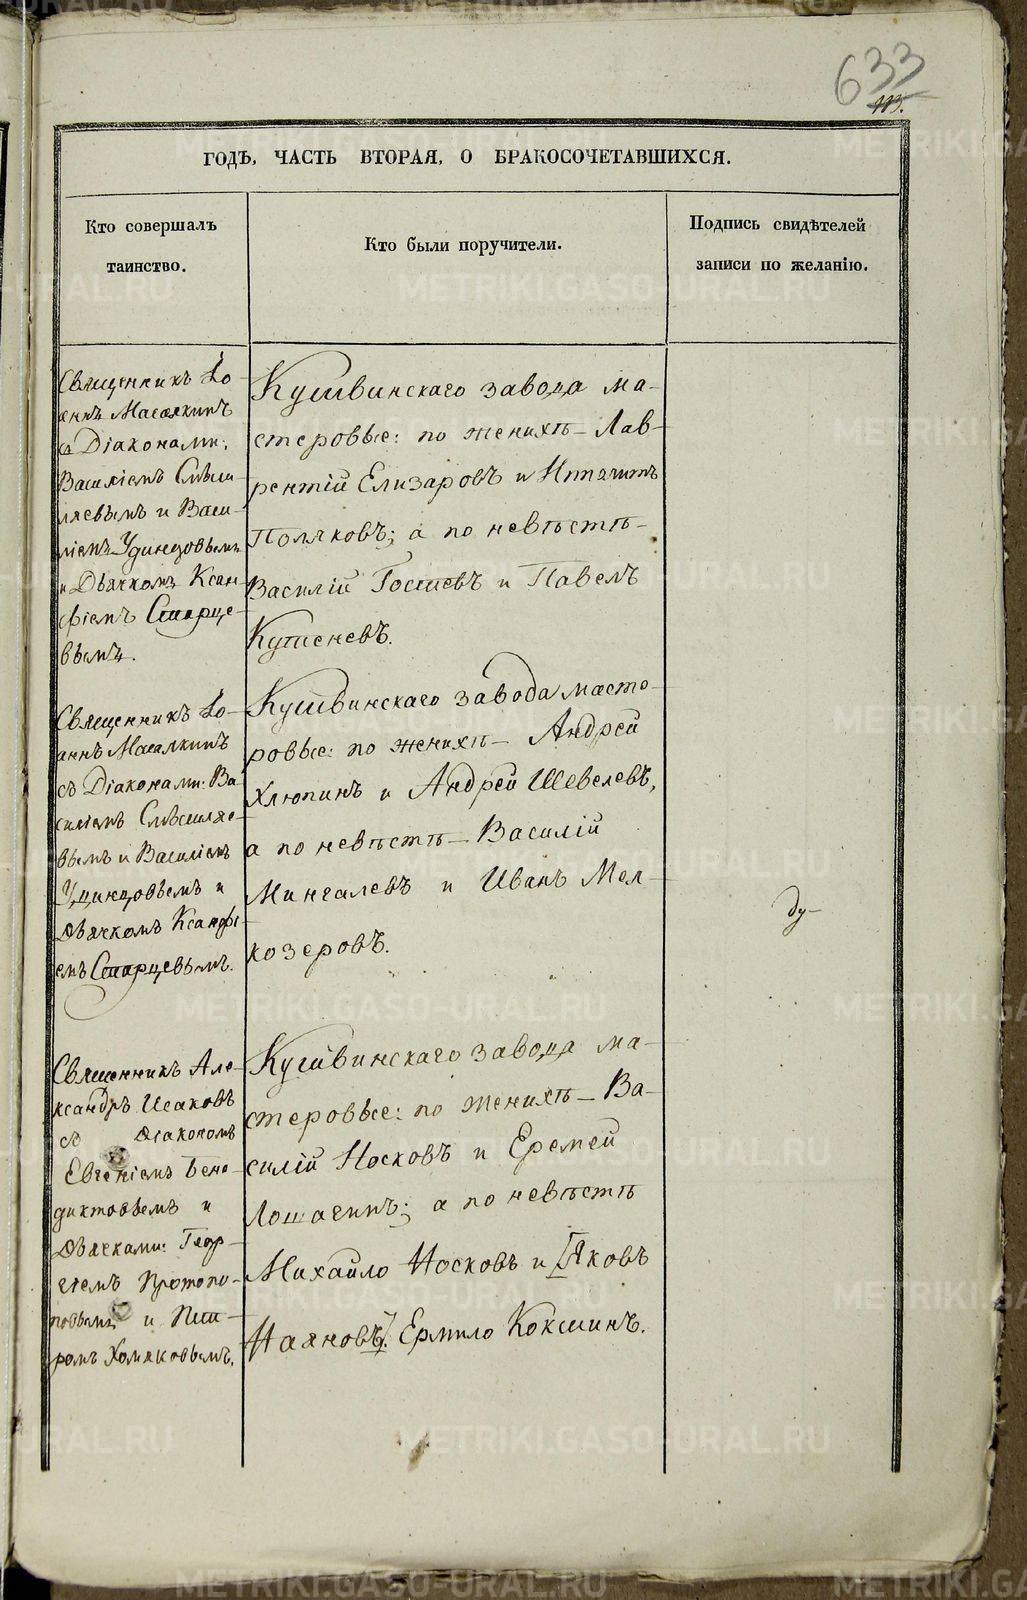 633
ГОДѢ, ЧАСТЬ ВТОРАЯ, О БРАКОСОЧЕТАВШИХСЯ.
Кто совершалъ
таинство.
Кто были поручители.
Подпись свидѣтелей
записи по желанію.
Священникъ Іо-
аннъ Масалкинъ
съ Діаконами:
Василіемъ
и Васи-
ліемъ Удинцовымъ
и Дьячкомъ Ксан-
фіемъ Старце-
вымъ.
Кушвинскаго завода ма-
стеровые: по женихѣ – Лав-
рентій Елизаровъ и
Поляковъ; а по невѣстѣ –
Василій Гостевъ и Павелъ
Кутеневъ.
Священникъ Іо-
аннъ Масалкинъ
съ Діаконами: Ва-
силіемъ
вымъ и Василіемъ
Удинцовымъ и
Дьячкомъ Ксанфі-
емъ Старцевымъ.
Кушвинскаго завода масте-
ровые: по женихѣ – Андрей
Хлюпинъ и Андрей Шевелевъ,
а по невѣстѣ – Василій
Мингалевъ и Иванъ Мел-
козеровъ.
ду-
Священникъ Але-
ксандръ Исаковъ
съ Діакономъ
Евгеніемъ Бене-
диктовымъ и
Дьячками: Геор-
гіемъ Протопо-
повымъ и Пет-
ромъ Хомяковымъ.
Кушвинскаго завода ма-
стеровые: по женихѣ – Ва-
силій Носковъ и Еремей
Лошагинъ; а по невѣстѣ
Михайло Носковъ и [Яковъ
Наяновъ]. Ермило Кокшинъ.
METRIKI.GASO-URAL.RU